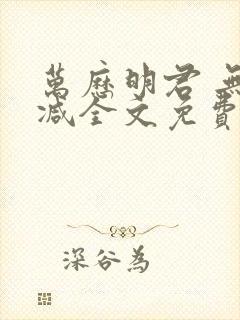 萬歷明君 無
減全文免費
深谷為